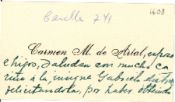 Casilla 241
1608
Carmen M. de Artal, esposo
e hijos, saludan con mucho ca
riño a la insigne Gabriela
felicitándola, por haber obtenido